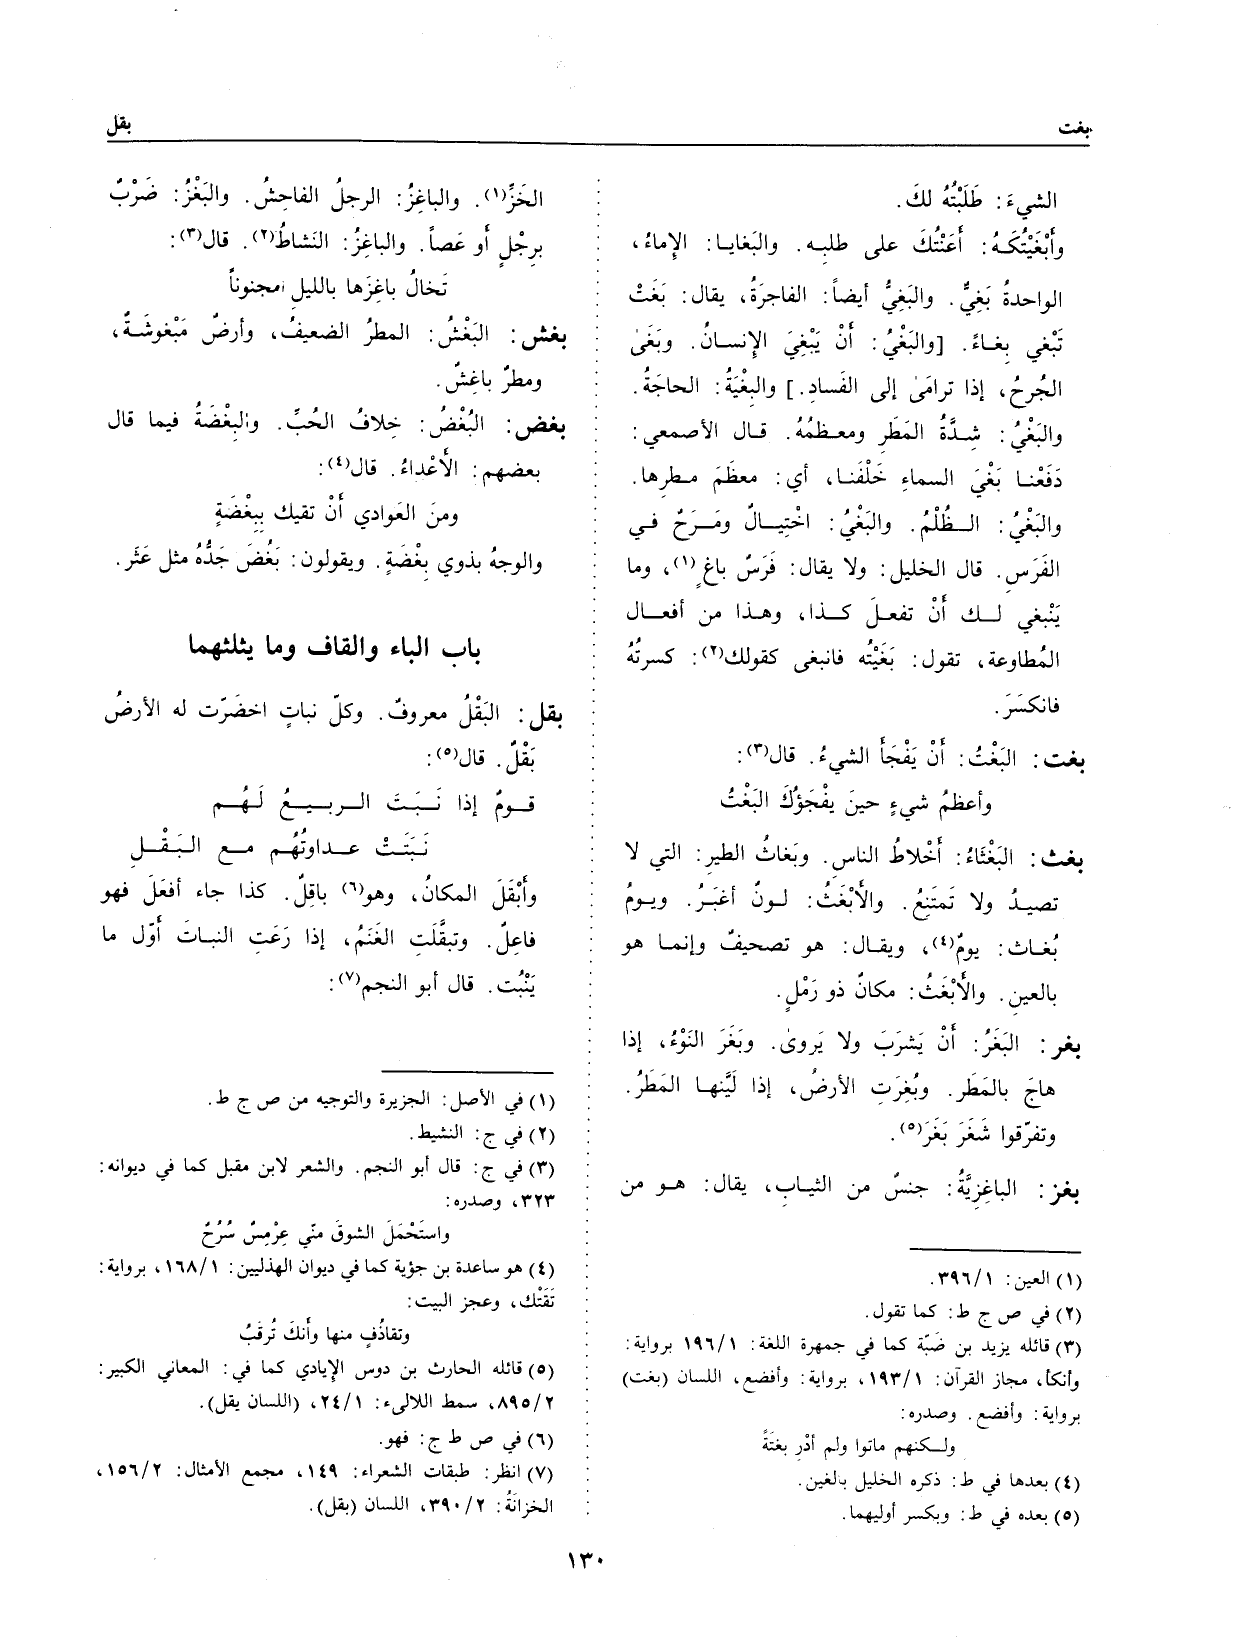 بغت
بقل
الشيءَ: طَلَبْتُهُ لكَ.
وأَبْغَيْتُكَهُ: أَعَنْتُكَ على طلبِه. والبَغايا: الإماءُ،
الواحدةُ بَغِيٌّ. والبَغِيُّ أيضاً: الفاجرَةُ، يقال: بَغَتْ
تَبْغي بِغاءً. [والبَغْيُ: أَنْ يَبْغِيَ الإنسانُ. وبَغَى
الجُرحُ، إذا ترامَىٰ إلى الفَسادِ.] والبِغْيَةُ: الحاجَةُ.
والبَغْيُ: شِدَّةُ المَطَرِ ومعظمُهُ. قال الأصمعي:
دَفَعْنا بَغْيَ السماءِ خَلْفَنا، أي: معظَمَ مطرِها.
والبَغْيُ: الظُلْمُ. والبَغْيُ: اخْتِيالٌ ومَرَحٌ في
الفَرَسِ. قال الخليل: ولا يقال: فَرَسٌ باغٍ(١)، وما
يَنْبغي لك أَنْ تفعلَ كذا، وهذا من أفعال
المُطاوعة، تقول: بَغَيْتُه فانبغى كقولك(٢): كسرتُهُ
فانكسَرَ.
بغت: البَغْتُ: أَنْ يَفْجَأَ الشيءُ. قال(٣):
وأعظمُ شيءٍ حينَ يفْجَؤُكَ البَغْتُ
بغث: البَغْثَاءُ: أَخْلاطُ الناسِ. وبَغاثُ الطيرِ: التي لا
تصيدُ ولا تَمتَنِعُ. والأَبْغَثُ: لونٌ أغبَرُ. ويومُ
بُغاث: يومٌ(٤)، ويقال: هو تصحيفٌ وإنما هو
بالعين. والأَبْغَثُ: مكانٌ ذو رَمْلٍ.
بغر: البَغَرُ: أَنْ يَشرَبَ ولا يَروىٰ. وبَغَرَ النَوْءُ، إذا
هاجَ بالمَطَرِ. وبُغِرَتِ الأرضُ، إذا لَيَّنها المَطَرُ.
وتفرّقوا شَغَرَ بَغَرَ(٥).
بغز: الباغِزِيَّةُ: جنسٌ من الثيابِ، يقال: هو من
(١) العين: ٣٩٦/١.
(٢) في ص ج ط: كما تقول.
(٣) قائله يزيد بن ضَبّة كما في جمهرة اللغة: ١٩٦/١ برواية:
وأنكأ، مجاز القرآن: ١٩٣/١، برواية: وأفضع، اللسان (بغت)
برواية: وأفضع. وصدره:
ولكنهم ماتوا ولم أدْرِ بغتَةً
(٤) بعدها في ط: ذكره الخليل بالغين.
(٥) بعده في ط: وبكسر أوليهما.
الخَزِّ(١). والباغِزُ: الرجلُ الفاحِشُ. والبَغْزُ: ضَرْبٌ
برِجْلٍ أو عَصاً. والباغِزُ: النَشاطُ(٢). قال(٣):
تَخالُ باغِزَها بالليلِ مجنوناً
بغش: البَغْشُ: المطرُ الضعيفُ، وأرضٌ مَبْغوشَةٌ،
ومطرٌ باغِشٌ.
بغض: البُغْضُ: خِلافُ الحُبِّ. والبِغْضَةُ فيما قال
بعضهم: الأَعْداءُ. قال(٤):
ومنَ العَوادي أَنْ تقيك بِبِغْضَةٍ
والوجهُ بذوي بِغْضَةٍ. ويقولون: بَغُضَ جَدُّهُ مثل عَثَر.
باب الباء والقاف وما يثلثهما
بقل: البَقْلُ معروفٌ. وكلّ نباتٍ اخضَرّت له الأرضُ
بَقْلٌ. قال(٥):
قومٌ إذا نَبَتَ الربيعُ لَهُم
نَبَتَتْ عداوتُهُم مع البَقْلِ
وأَبْقَلَ المكانُ، وهو(٦) باقِلٌ. كذا جاء أفعَلَ فهو
فاعِلٌ. وتبقَّلَتِ الغَنَمُ، إذا رَعَتِ النباتَ أوّل ما
يَنْبُت. قال أبو النجم(٧):
(١) في الأصل: الجزيرة والتوجيه من ص ج ط.
(٢) في ج: النشيط.
(٣) في ج: قال أبو النجم. والشعر لابن مقبل كما في ديوانه:
٣٢٣، وصدره:
واستَحْمَلَ الشوقَ منّي عِرْمِسٌ سُرُحٌ
(٤) هو ساعدة بن جؤية كما في ديوان الهذليين: ١٦٨/١، برواية:
تَقَتْك، وعجز البيت:
وتقاذُفٍ منها وأنكَ تُرقَبُ
(٥) قائله الحارث بن دوس الإيادي كما في: المعاني الكبير:
٨٩٥/٢، سمط اللالىء: ٢٤/١، (اللسان بقل).
(٦) في ص ط ج: فهو.
(٧) انظر: طبقات الشعراء: ١٤٩، مجمع الأمثال: ١٥٦/٢،
الخزانَةُ: ٣٩٠/٢، اللسان (بقل).
١٣٠